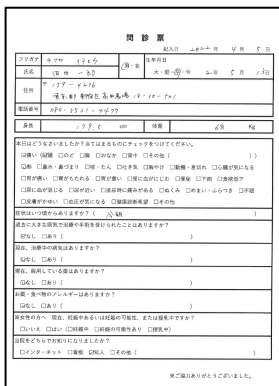 問診票
記入日 2022 年 4 月 5 日
フリガナ
氏名
男・女
生年月日
大・昭・平・令 2 年 5 月 13 日
住所
〒 159-4216
東京都 新宿区 高田馬場
電話番号
身長 179.5 cm 体重 68 Kg
本日はどうなさいましたか?当てはまるものにチェックをつけてください。
□痛い □頭 □のど □胸 □おなか □背中 □その他( ))
□熱 □鼻水・鼻づまり □咳・たん □吐き気 □胸やけ □動機・息切れ □心臓が気になる
□胃が痛い □胃がもたれる □胃が重い □便に血がにじむ □便秘 □下痢 □食欲低下
□尿に血が混じる □尿が近い □排尿時に痛みがある □むくみ □めまい・ふらつき □不眠
□皮膚がかゆい □血圧が気になる □健康診断希望 □その他
症状はいつ頃からありますか?( 今朝
過去に大きな病気で治療や手術を受けられたことはありますか?
☑なし □あり( )
現在、治療中の病気はありますか?
☑なし □あり( )
現在、服用している薬はありますか?
☑なし □あり( )
お薬・食べ物のアレルギーはありますか?
☑なし □あり( )
※女性の方へ 現在、妊娠中あるいは妊娠の可能性、または授乳中ですか?
□いいえ □はい(□妊娠中 □妊娠の可能性あり □授乳中)
当院をどちらでお知りになりましたか?
□インターネット □看板 ☑知人 □その他( )
※ご協力ありがとうございました。